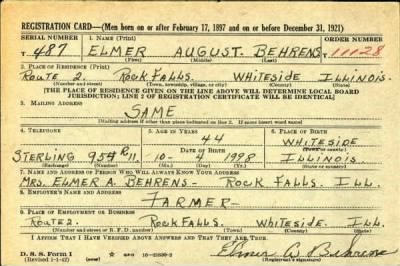 REGISTRATION CARD—(Men born on or after February 17, 1897 and on or before December 31, 1921)
SERIAL NUMBER 1. NAME (Print) ORDER NUMBER
T 487 ELMER AUGUST BEHRENS T 11128
(First) (Middle) (Last)
2. PLACE OF RESIDENCE (Print)
ROUTE 2. ROCK FALLS. WHITESIDE ILLINOIS.
(Number and street) (Town, township, village, or city) (County) (State)
[THE PLACE OF RESIDENCE GIVEN ON THE LINE ABOVE WILL DETERMINE LOCAL BOARD
JURISDICTION; LINE 2 OF REGISTRATION CERTIFICATE WILL BE IDENTICAL]
3. MAILING ADDRESS
SAME
[Mailing address if other than place indicated on line 2. If same insert word same]
4. TELEPHONE 5. AGE IN YEARS 6. PLACE OF BIRTH
44 WHITESIDE
DATE OF BIRTH (Town or county)
STERLING 954 R11. 10- 4 1998 ILLINOIS
(Exchange) (Number) (Mo.) (Day) (Yr.) (State or country)
7. NAME AND ADDRESS OF PERSON WHO WILL ALWAYS KNOW YOUR ADDRESS
MRS. ELMER A. BEHRENS- ROCK FALLS. ILL.
8. EMPLOYER'S NAME AND ADDRESS
FARMER-
9. PLACE OF EMPLOYMENT OR BUSINESS
ROUTE 2. ROCK FALLS. WHITESIDE. ILL.
(Number and street or R. F. D. number) (Town) (County) (State)
I AFFIRM THAT I HAVE VERIFIED ABOVE ANSWERS AND THAT THEY ARE TRUE.
D. S. S. Form 1 Elmer A. Behrens
(Revised 1-1-42) (over)